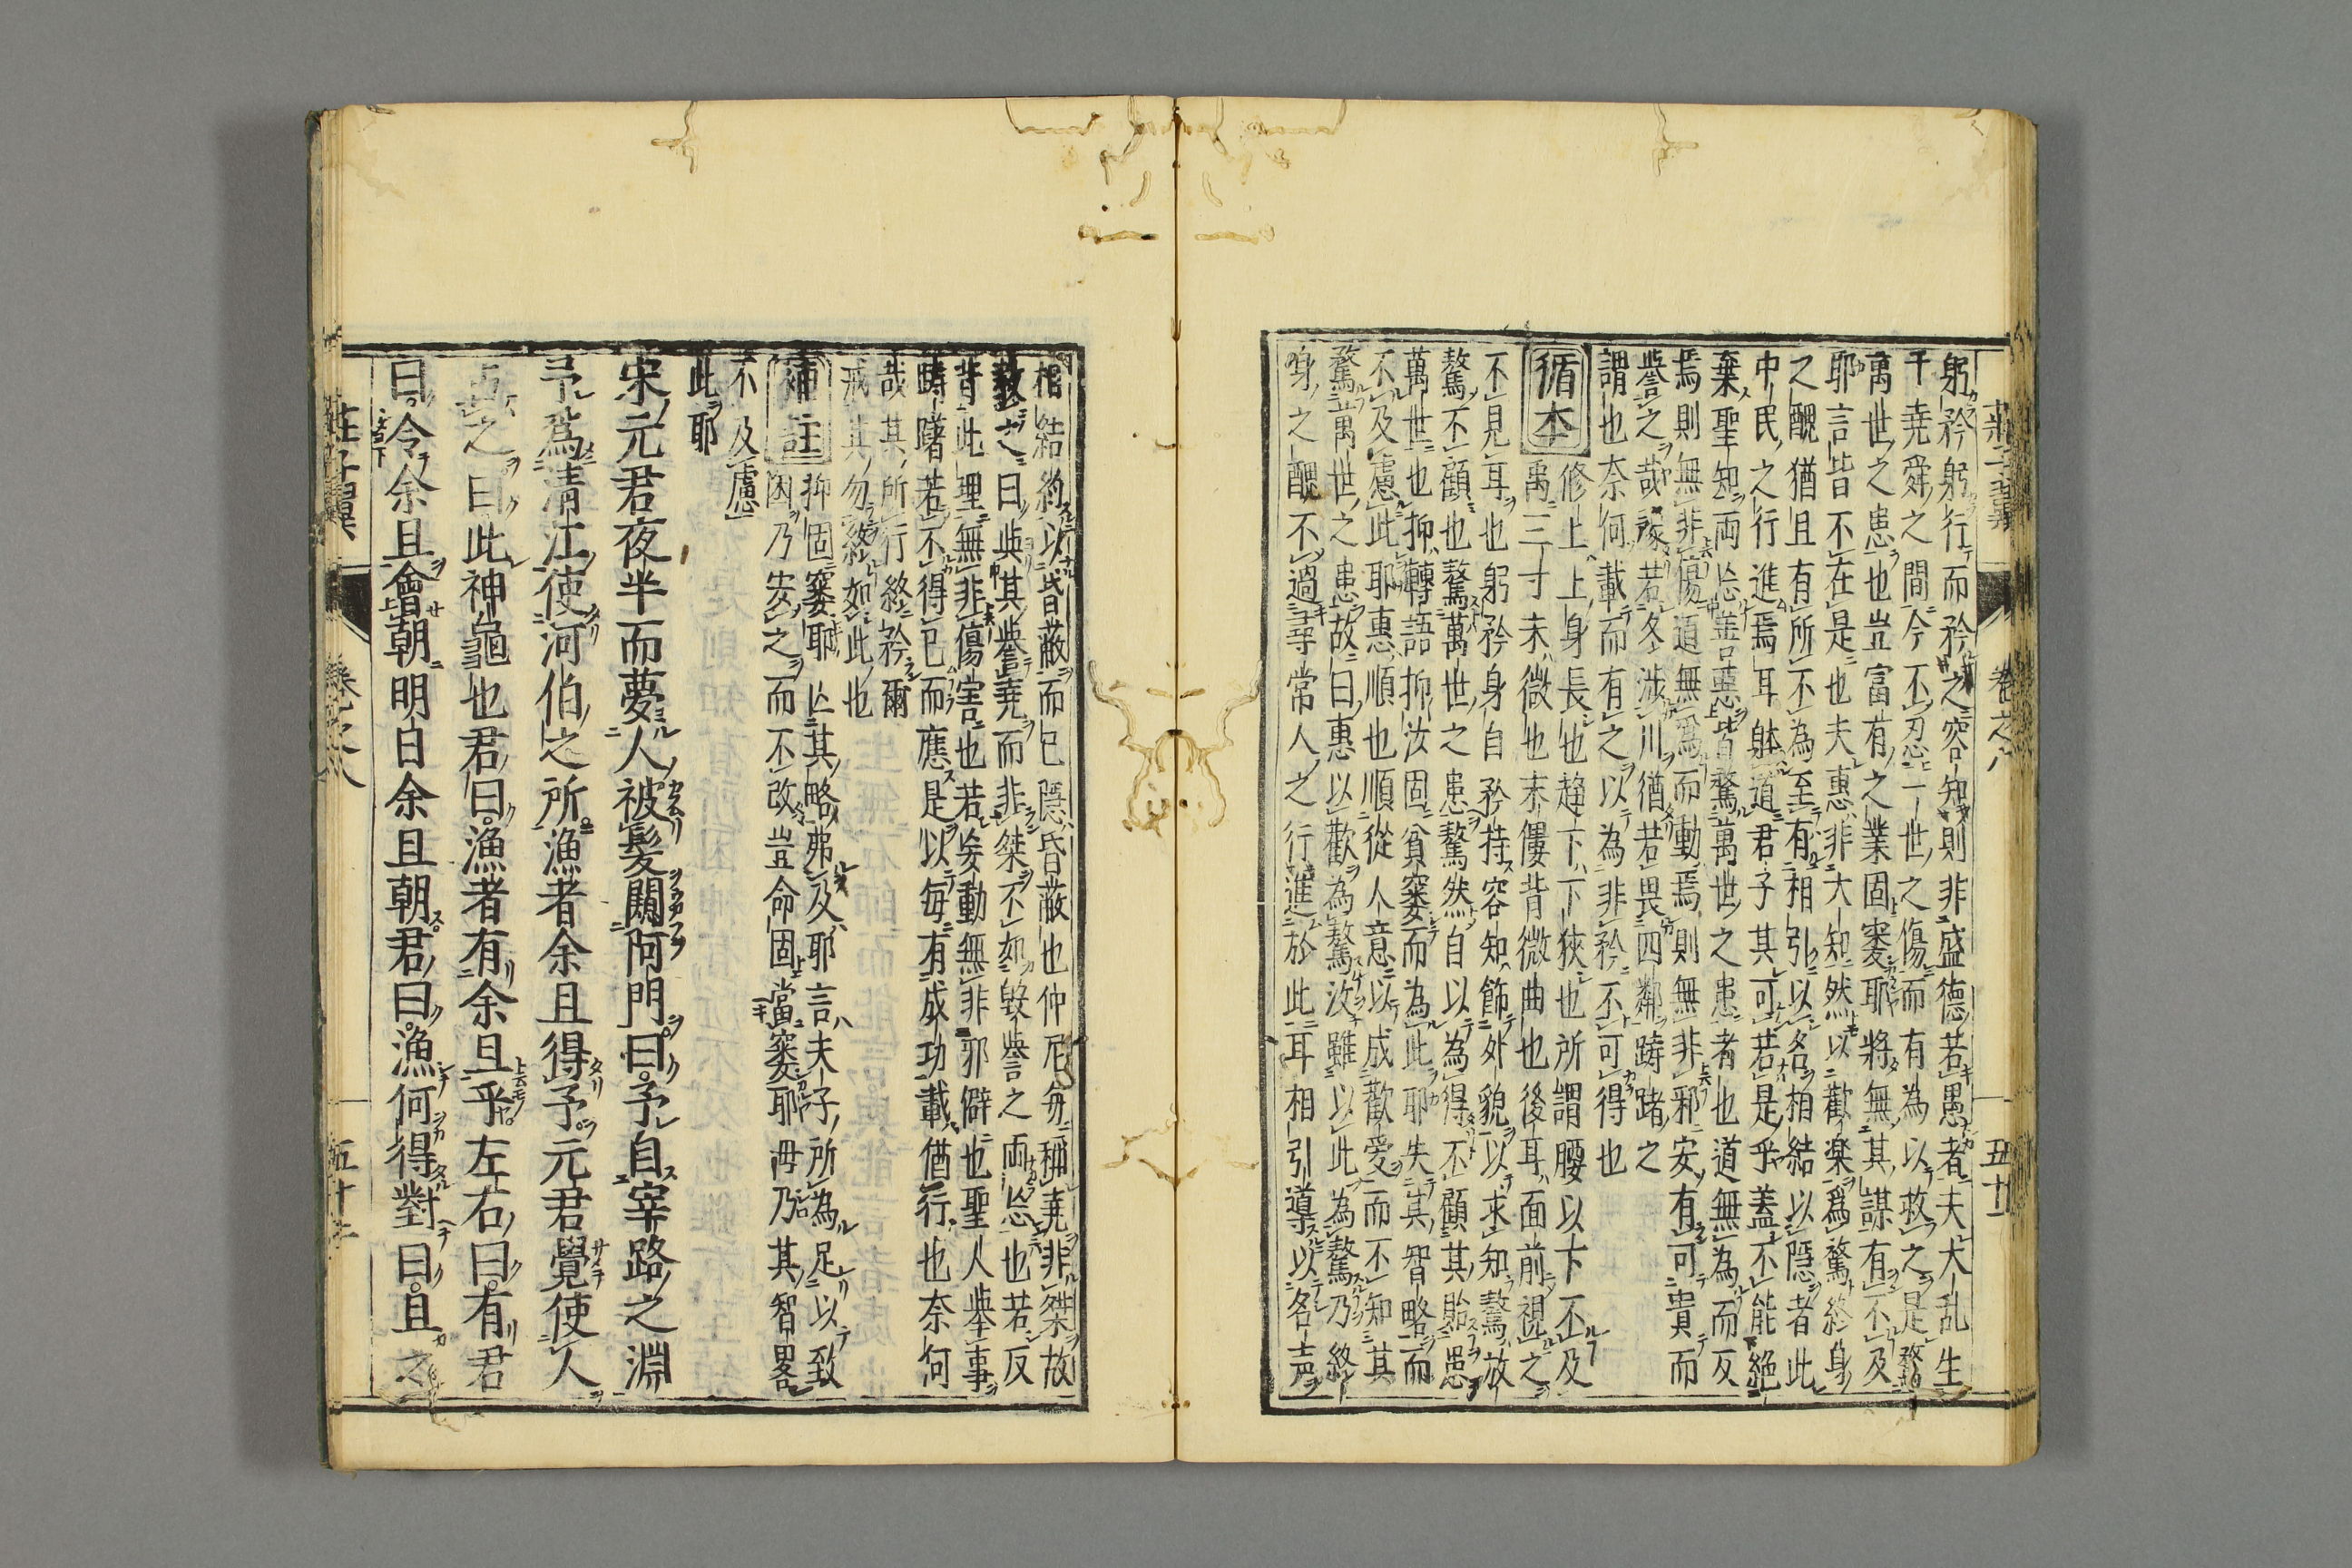 莊子翼 卷之八 五十
躬矜躬行而矜之容知則非盛德若愚者夫大乱生
千堯舜之間今不忍一世之傷而有為以救之是驁
萬世之患也豈富有之業固窶耶將無其謀有不及
耶言皆不在是也夫惠非大知然以歡楽爲驁終身
之醜猶且有所不為至有相引以名相結以隱者此
中民之行進焉耳躰道君子其可若是乎蓋不能絶
棄聖知両忘善惡皆驁萬世之患者也道無為而反
焉則無非傷道無爲而動焉則無非邪安有可貴而
譽之哉豫若冬涉川猶若畏四鄰躊躇之
謂也奈何載而有之以為非矜不可得也
循本
修上上身長也趨下下狹也所謂腰以下不及
禹三寸末微也末僂背微曲也後耳面前視之
不見耳也躬矜身自矜持容知飾外貌以求知驁放
驁不顧也驁萬世之患驁然自以為得不顧其貽患
萬世也抑轉語抑汝固貧窶而為此耶失其智略而
不及慮此耶惠順也順從人意以成歡愛而不知其
驁萬世之患故曰惠以歡為驁汝雖以此為驁乃終
身之醜不過尋常人之行進於此耳相引導以名声
相結約以昏蔽而已隱昏蔽也仲尼毎稱堯非桀故
教之曰與其譽堯而非桀不如毀譽之両忘也若反
背此理無非傷害也若妄動無非邪僻也聖人舉事
躊躇若不得已而應是以毎有成功載猶行也奈何
哉其所行終矜爾
戒其勿終如此也
補註
抑固窶耶亾其略弗及耶言夫子所為足以致
困乃安之而不改豈命固當窶耶毋乃其智畧
不及慮
此耶
宋元君夜半而夢人被髮闚阿門曰予自宰路之淵
予爲清江使河伯之所漁者余且得予元君覺使人
占之曰此神龜也君曰漁者有余且乎左右曰有君
曰令余且會朝明日余且朝君曰漁何得對曰且之
莊子翼 卷之八 五十一